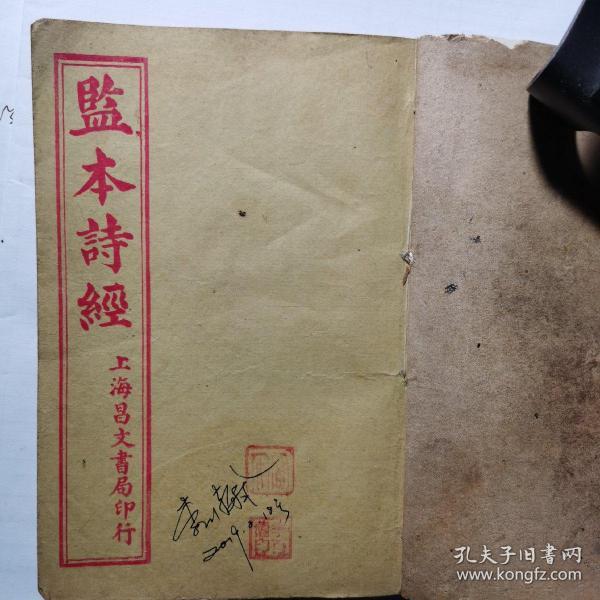 監本詩經
上海昌文書局印行
孔夫子旧書网
www.kongfz.com